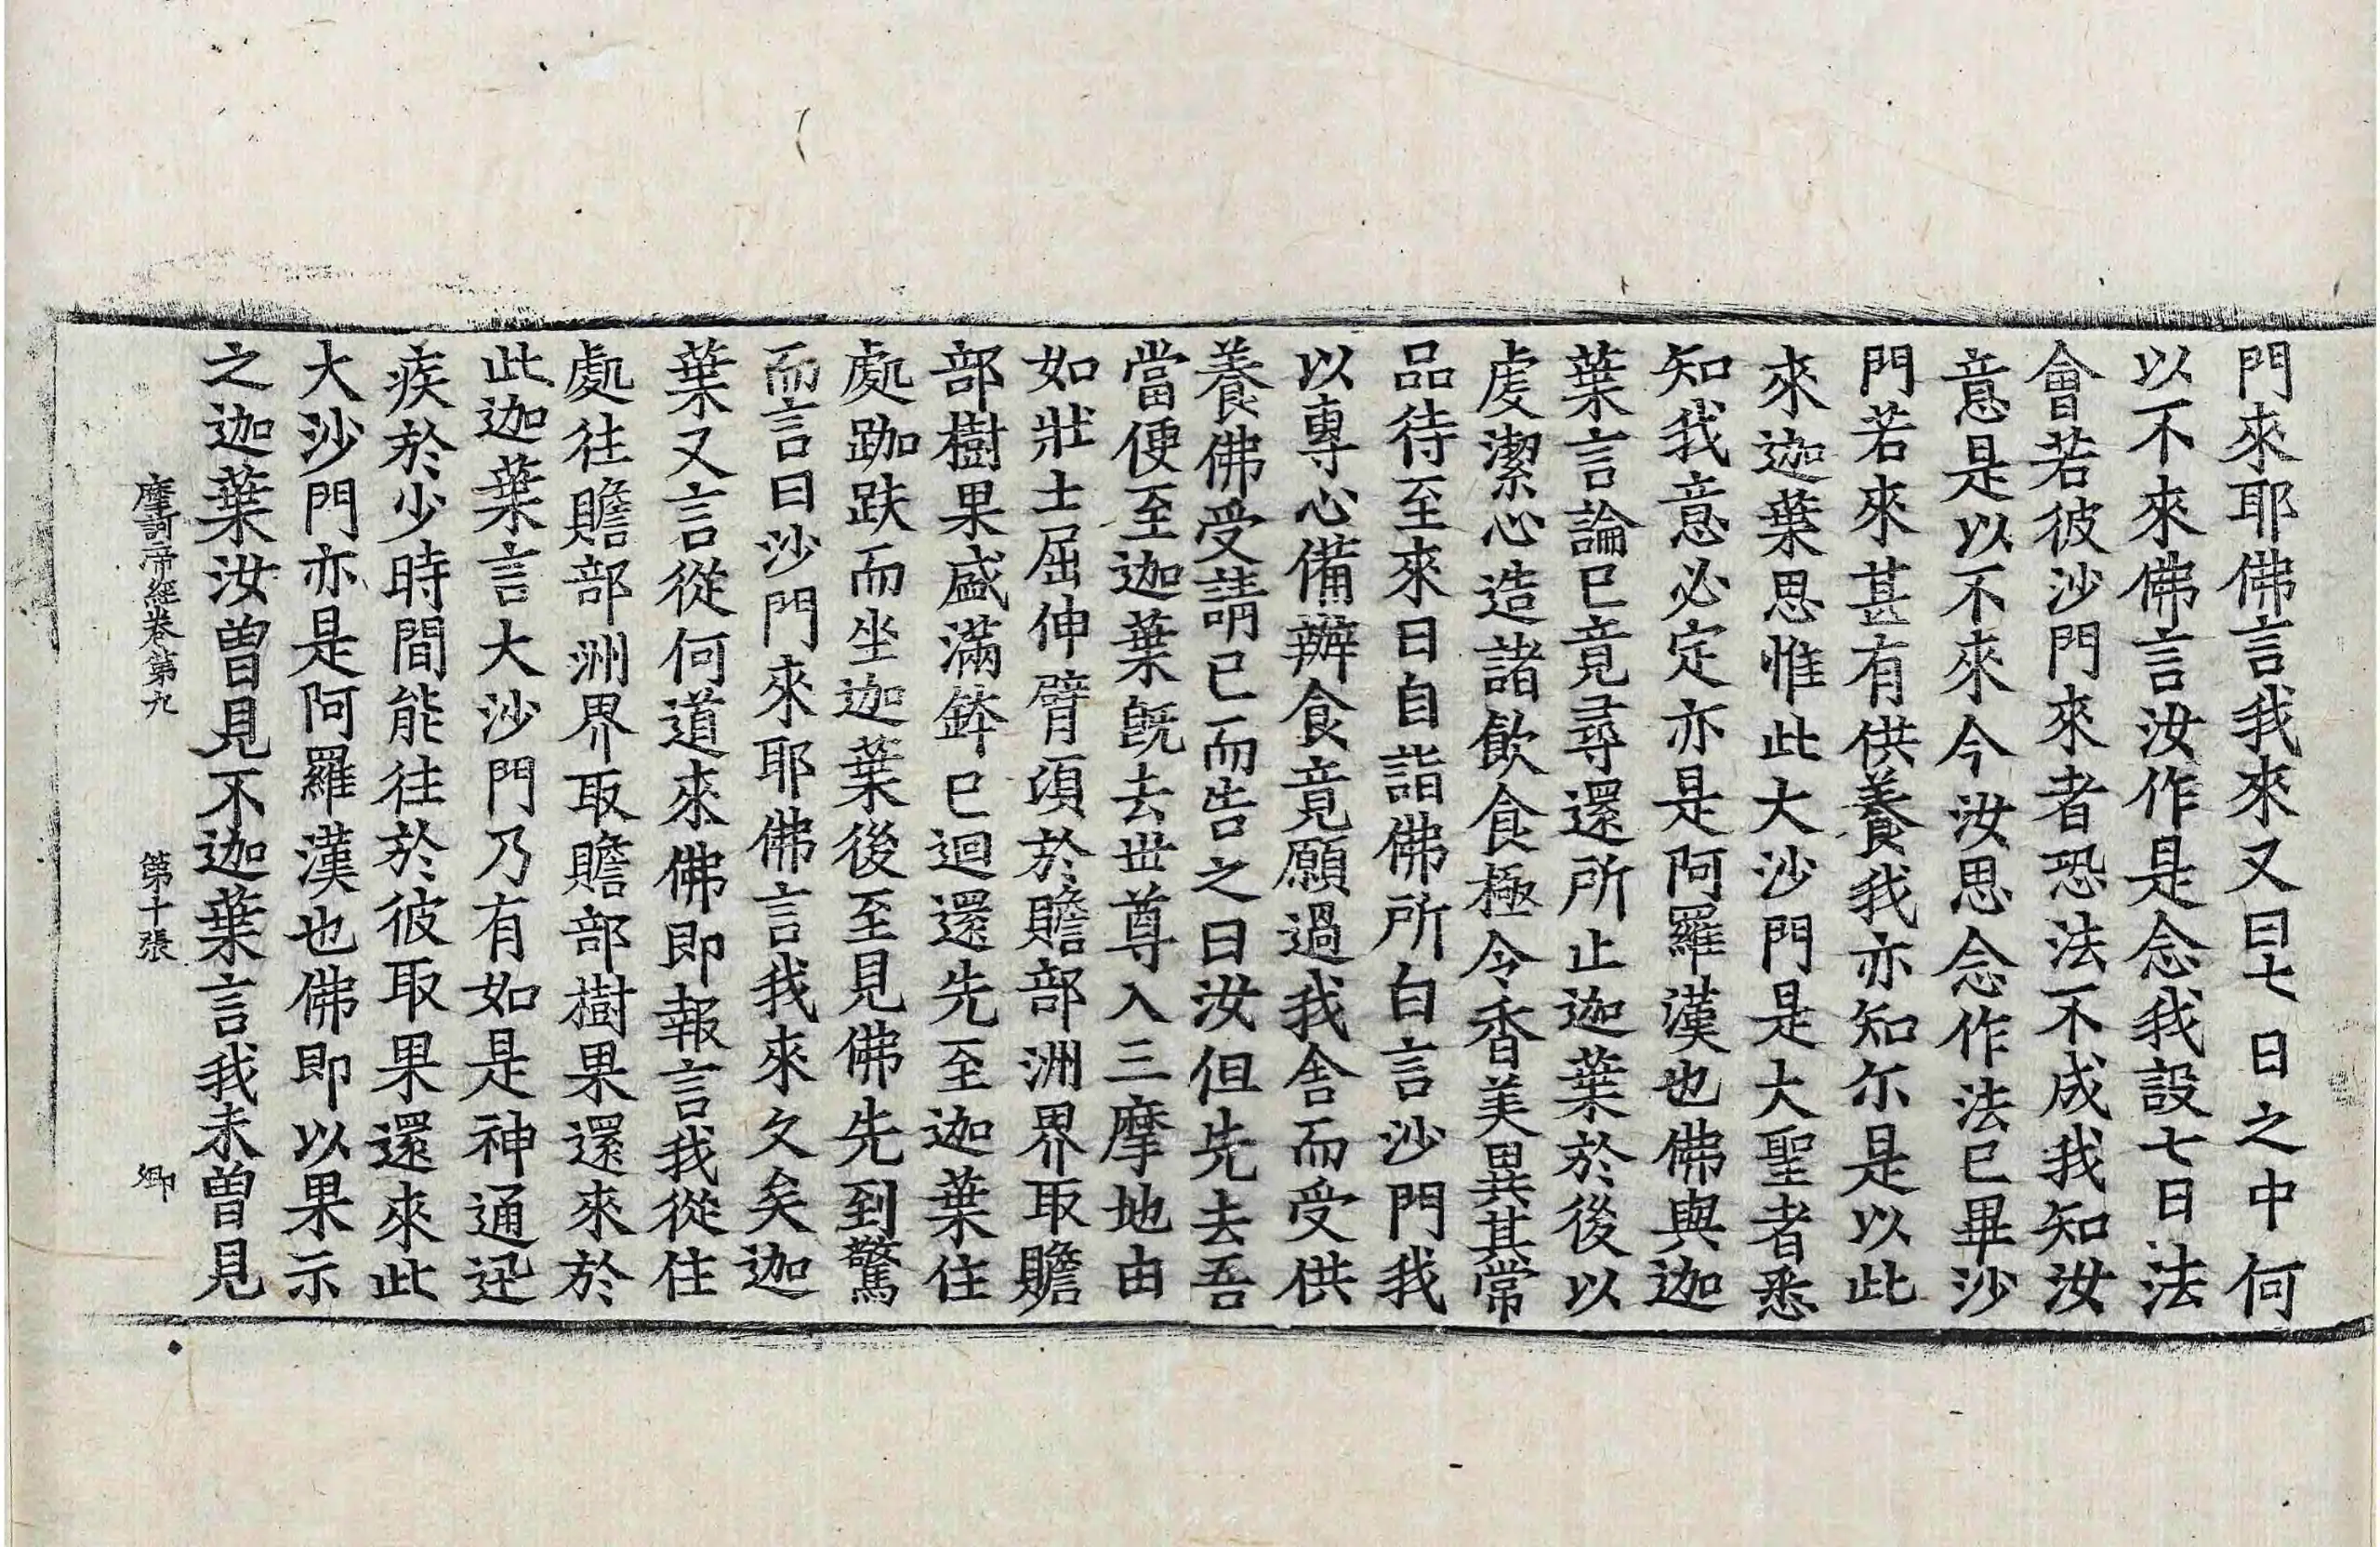 門來耶佛言我來又曰七日之中何
以不來佛言汝作是念我設七日法
會若彼沙門來者恐法不成我知汝
意是以不來今汝思念作法已畢沙
門若來甚有供養我亦知尓是以此
來迦葉思惟此大沙門是大聖者悉
知我意必定亦是阿羅漢也佛與迦
葉言論已竟尋還所止迦葉於後以
虔潔心造諸飲食極令香美異其常
品待至來日自詣佛所白言沙門我
以專心備辦食竟願過我舍而受供
養佛受請已而告之曰汝但先去吾
當便至迦葉旣去世尊入三摩地由
如壯士屈伸臂頃於贍部洲界取贍
部樹果盛滿鉢已迴還先至迦葉住
處跏趺而坐迦葉後至見佛先到驚
而言曰沙門來耶佛言我來久矣迦
葉又言從何道來佛即報言我從住
處往贍部洲界取贍部樹果還來於
此迦葉言大沙門乃有如是神通迅
疾於少時間能往於彼取果還來此
大沙門亦是阿羅漢也佛即以果示
之迦葉汝曾見不迦葉言我未曾見
摩訶帝經卷第九 第十張 卿